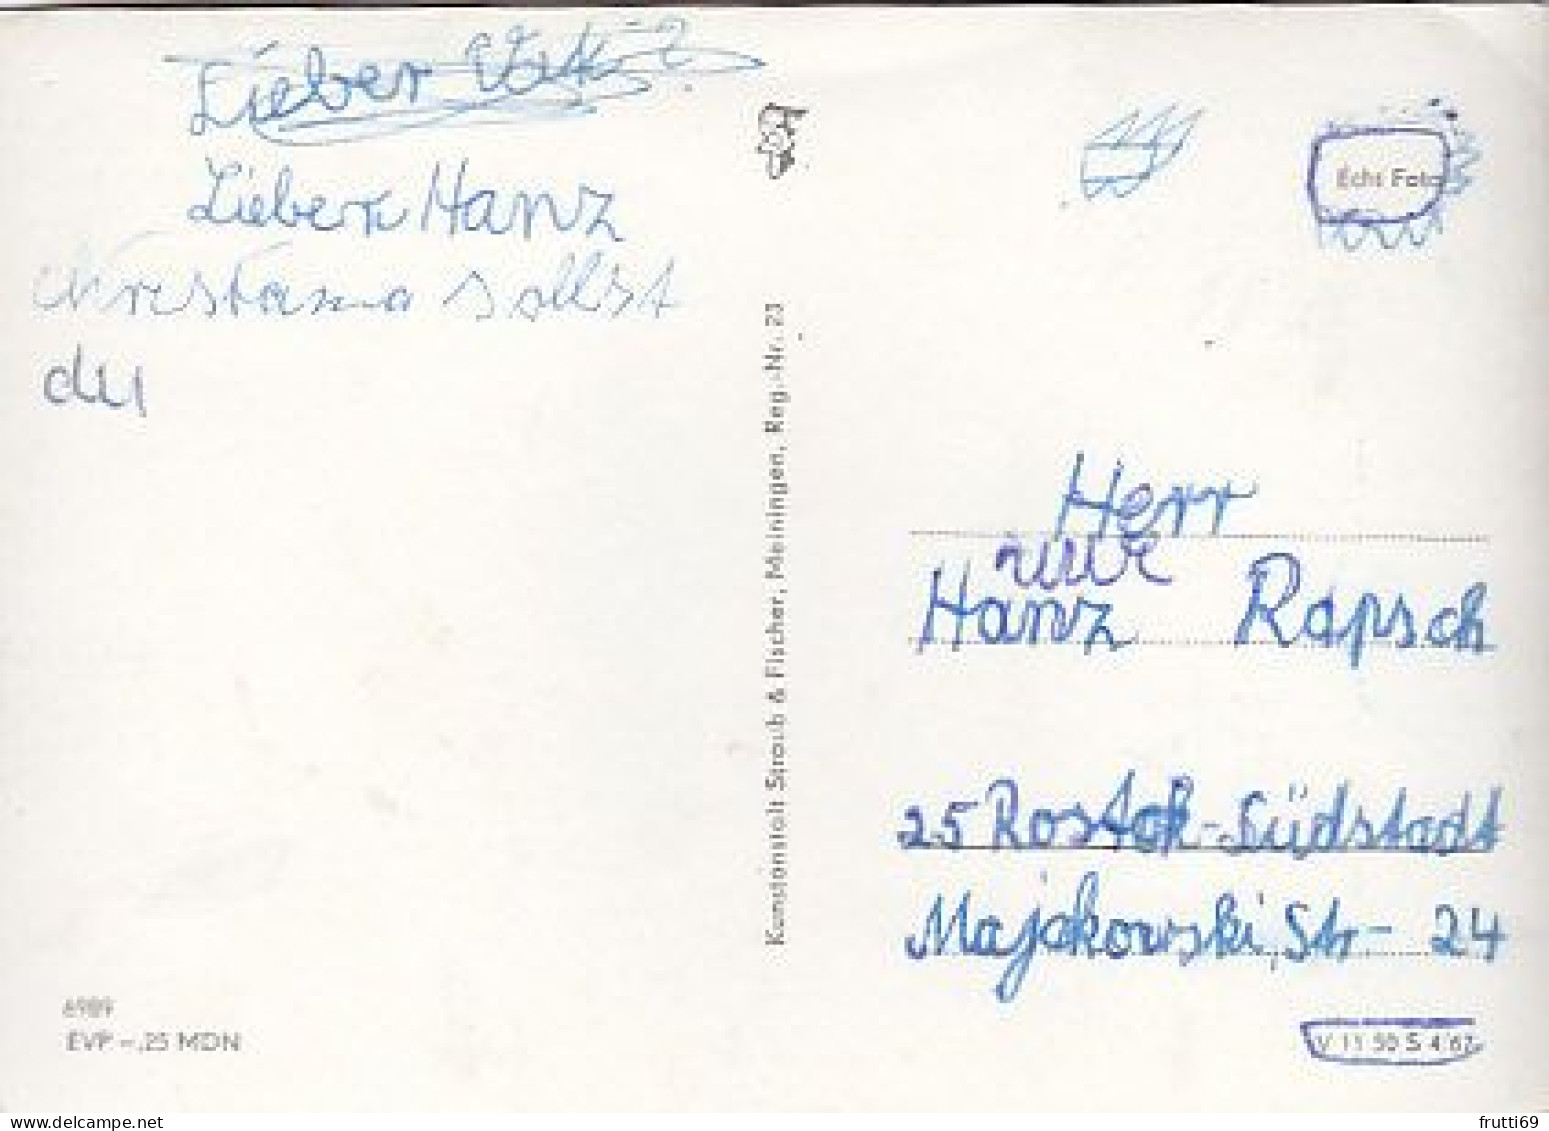 Lieber
Lieber Hanz
sollst
du
Echt Foto
Kunstanstalt Straub & Fischer, Meiningen, Reg.-Nr. 23
Herr
Hanz Rapsch
25 Rostok-Südstadt
Majakowski, Str- 24
6989
EVP -,25 MDN
V 11 50 S 4 67
frutti69